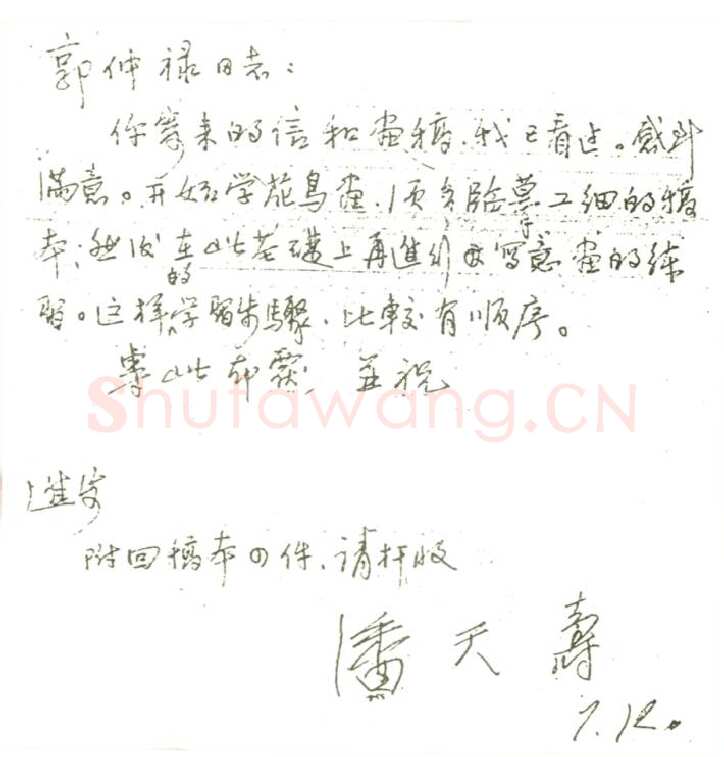 郭仲禄同志：
你寄来的信和画稿，我已看过。感到
满意。开始学花鸟画，须多临摹工细的稿
本；然后在此基础上再进行写意画的练
习。这样的学习步骤，比较有顺序。
专此布覆，并祝
Shufawang.CN
进步
附回稿本四件，请打收
潘天寿
7.12。